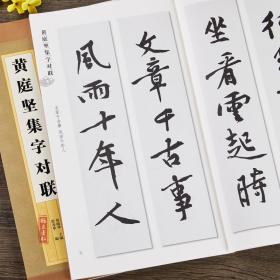 黄庭坚集字对联
黄庭坚集字对联
文章千古事
風雨十年人
文章千古事 风雨十年人
坐看雲起時